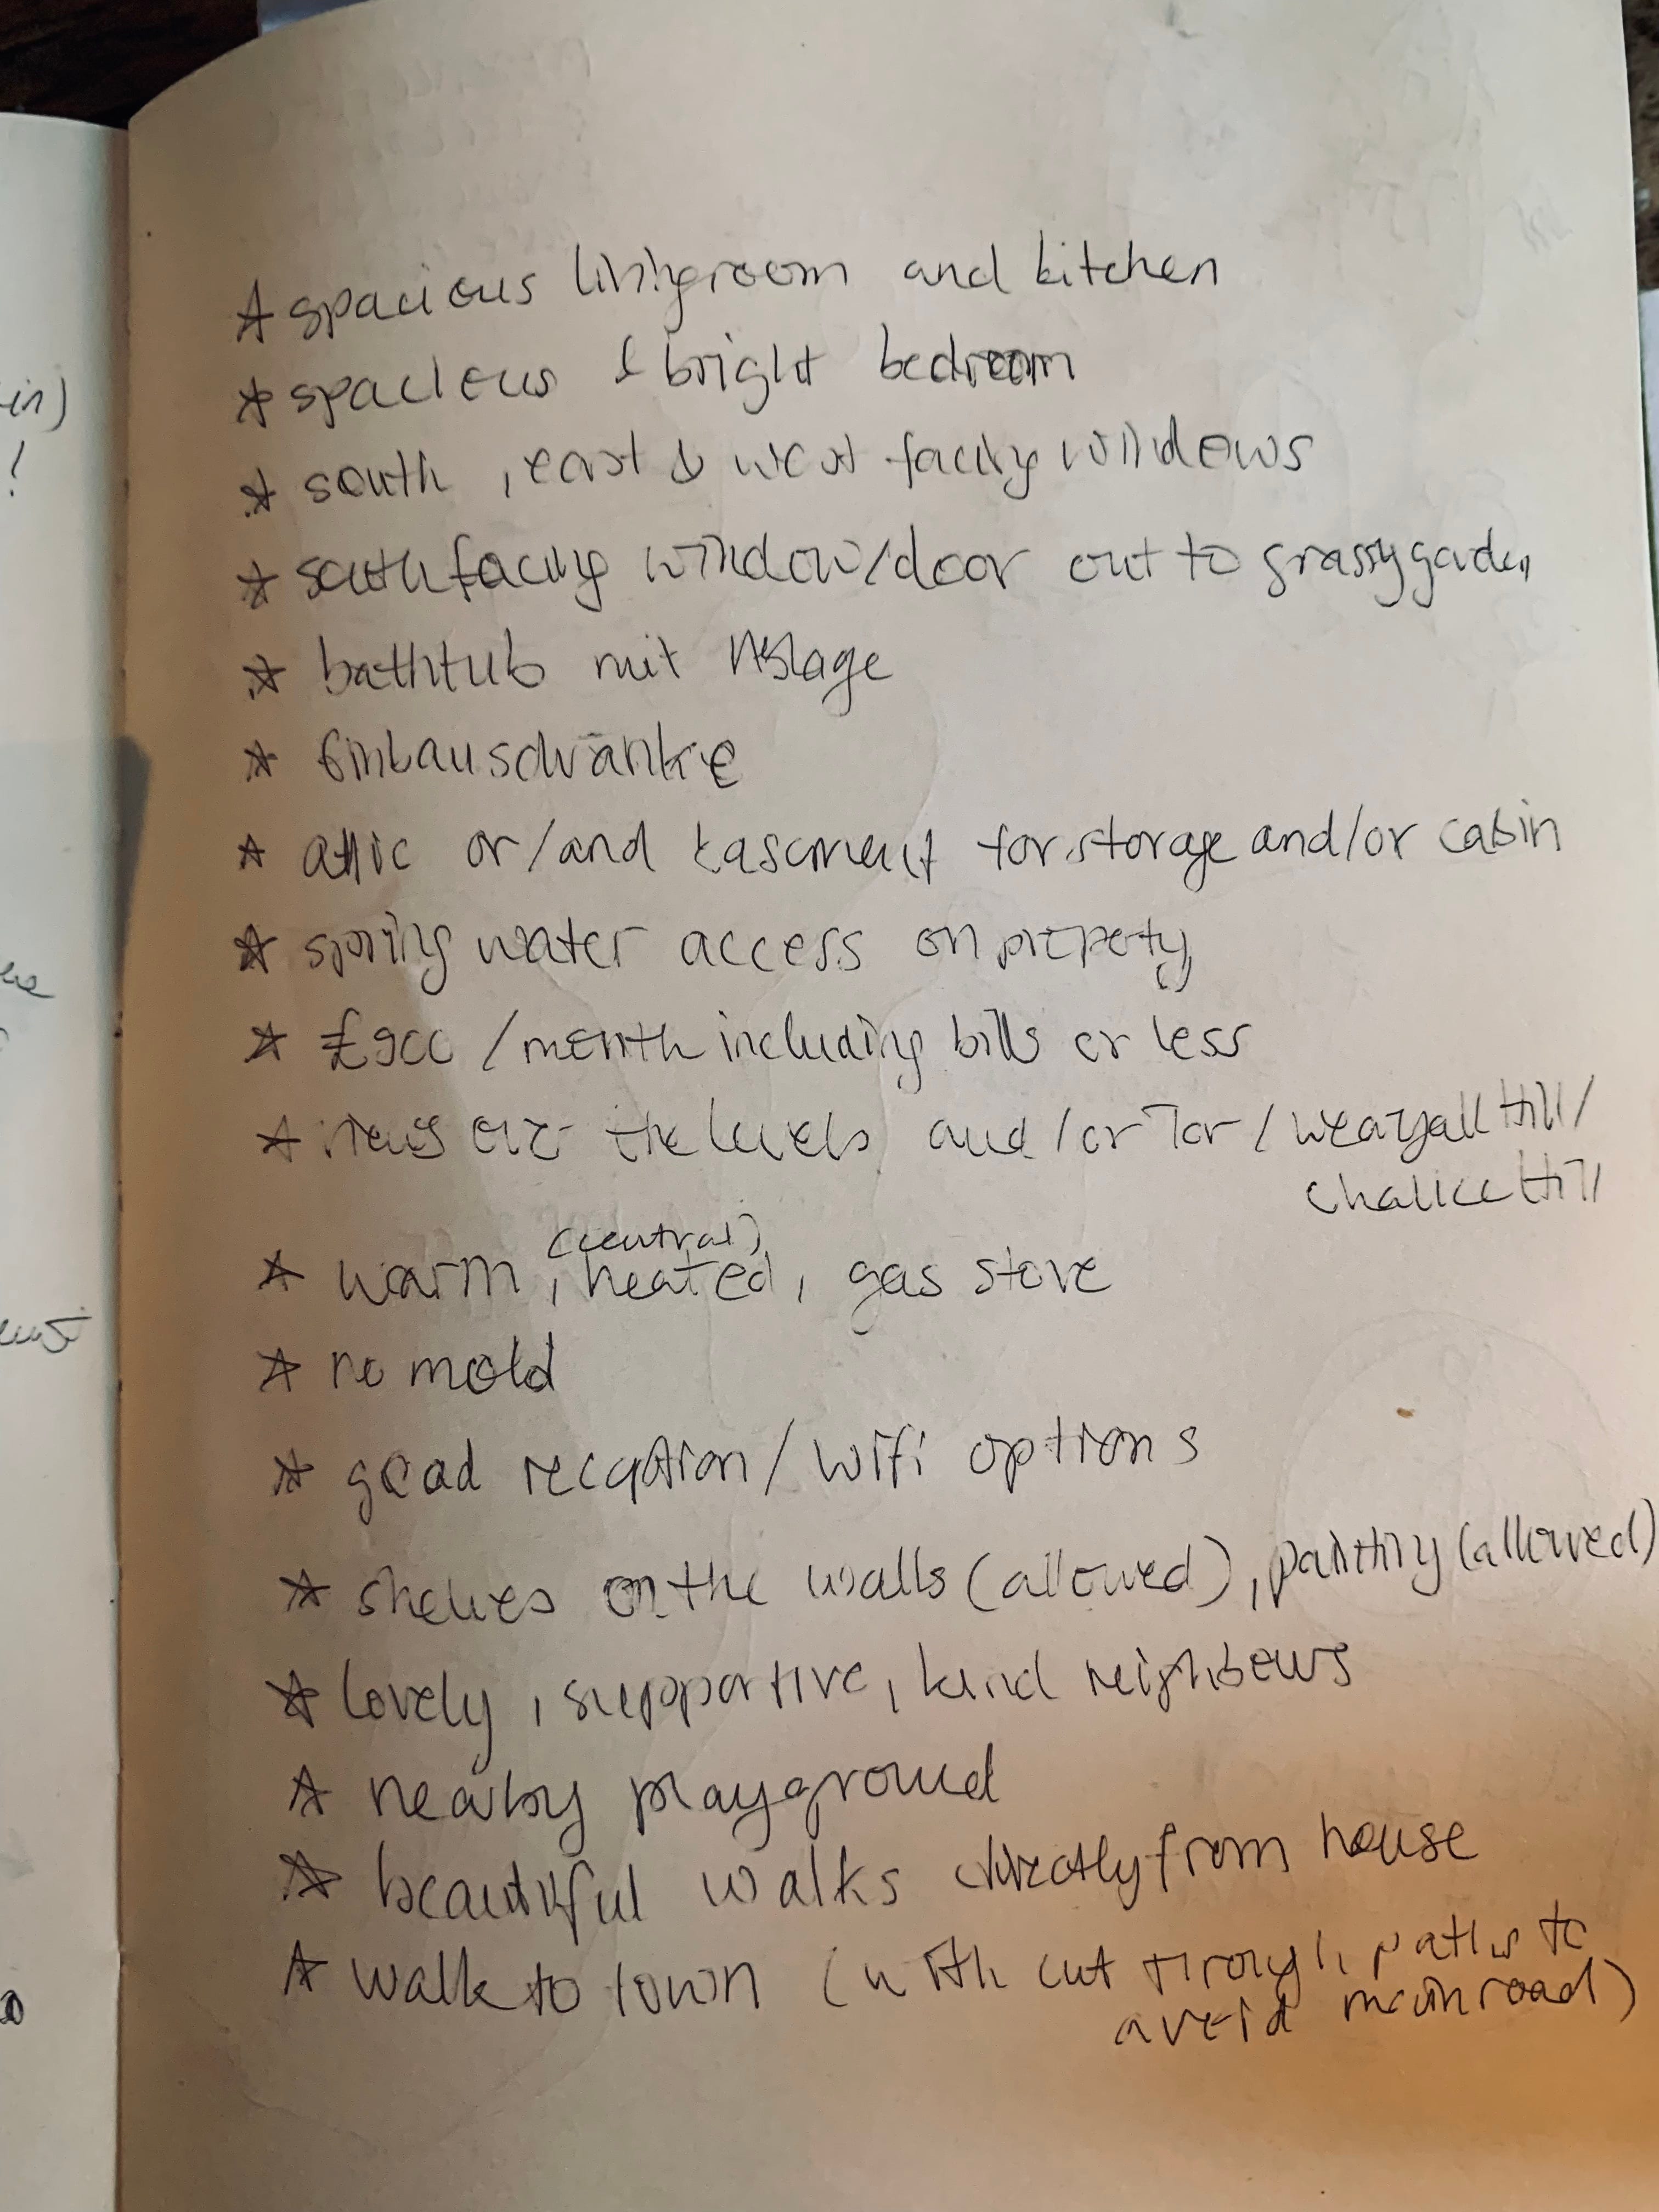 in)
!
☆ spacious livingroom and kitchen
☆ spacious & bright bedroom
☆ south, east & west facing windows
☆ south facing window/door out to grassy garden
☆ bathtub mit
☆ Einbauschränke
☆ attic or/and basement for storage and/or cabin
☆ spring water access on property
☆ £900 /month including bills or less
☆ views over the levels and/or Tor/Wearyall Hill/
Chalice Hill
(central)
☆ warm, heated, gas stove
☆ no mold
☆ good reception/wifi options
☆ shelves on the walls (allowed), painting (allowed)
☆ lovely, supportive, kind neighbours
☆ nearby playground
☆ beautiful walks directly from house
☆ walk to town (with cut through paths to
avoid main road)